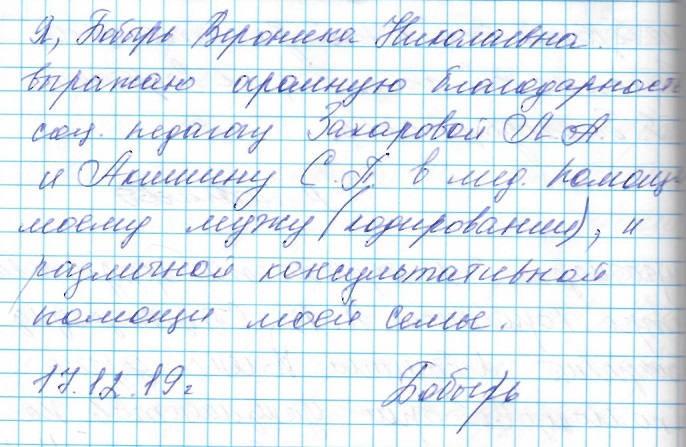 Я, Бобырь Вероника Николаевна.
выражаю огромную благодарность
соц. педагогу Захаровой Л.А.
и Акишину С.П. в мед. помощи
моему мужу (кодировании), и
различной консультативной
помощи моей семье.
17.12.19г Бобырь